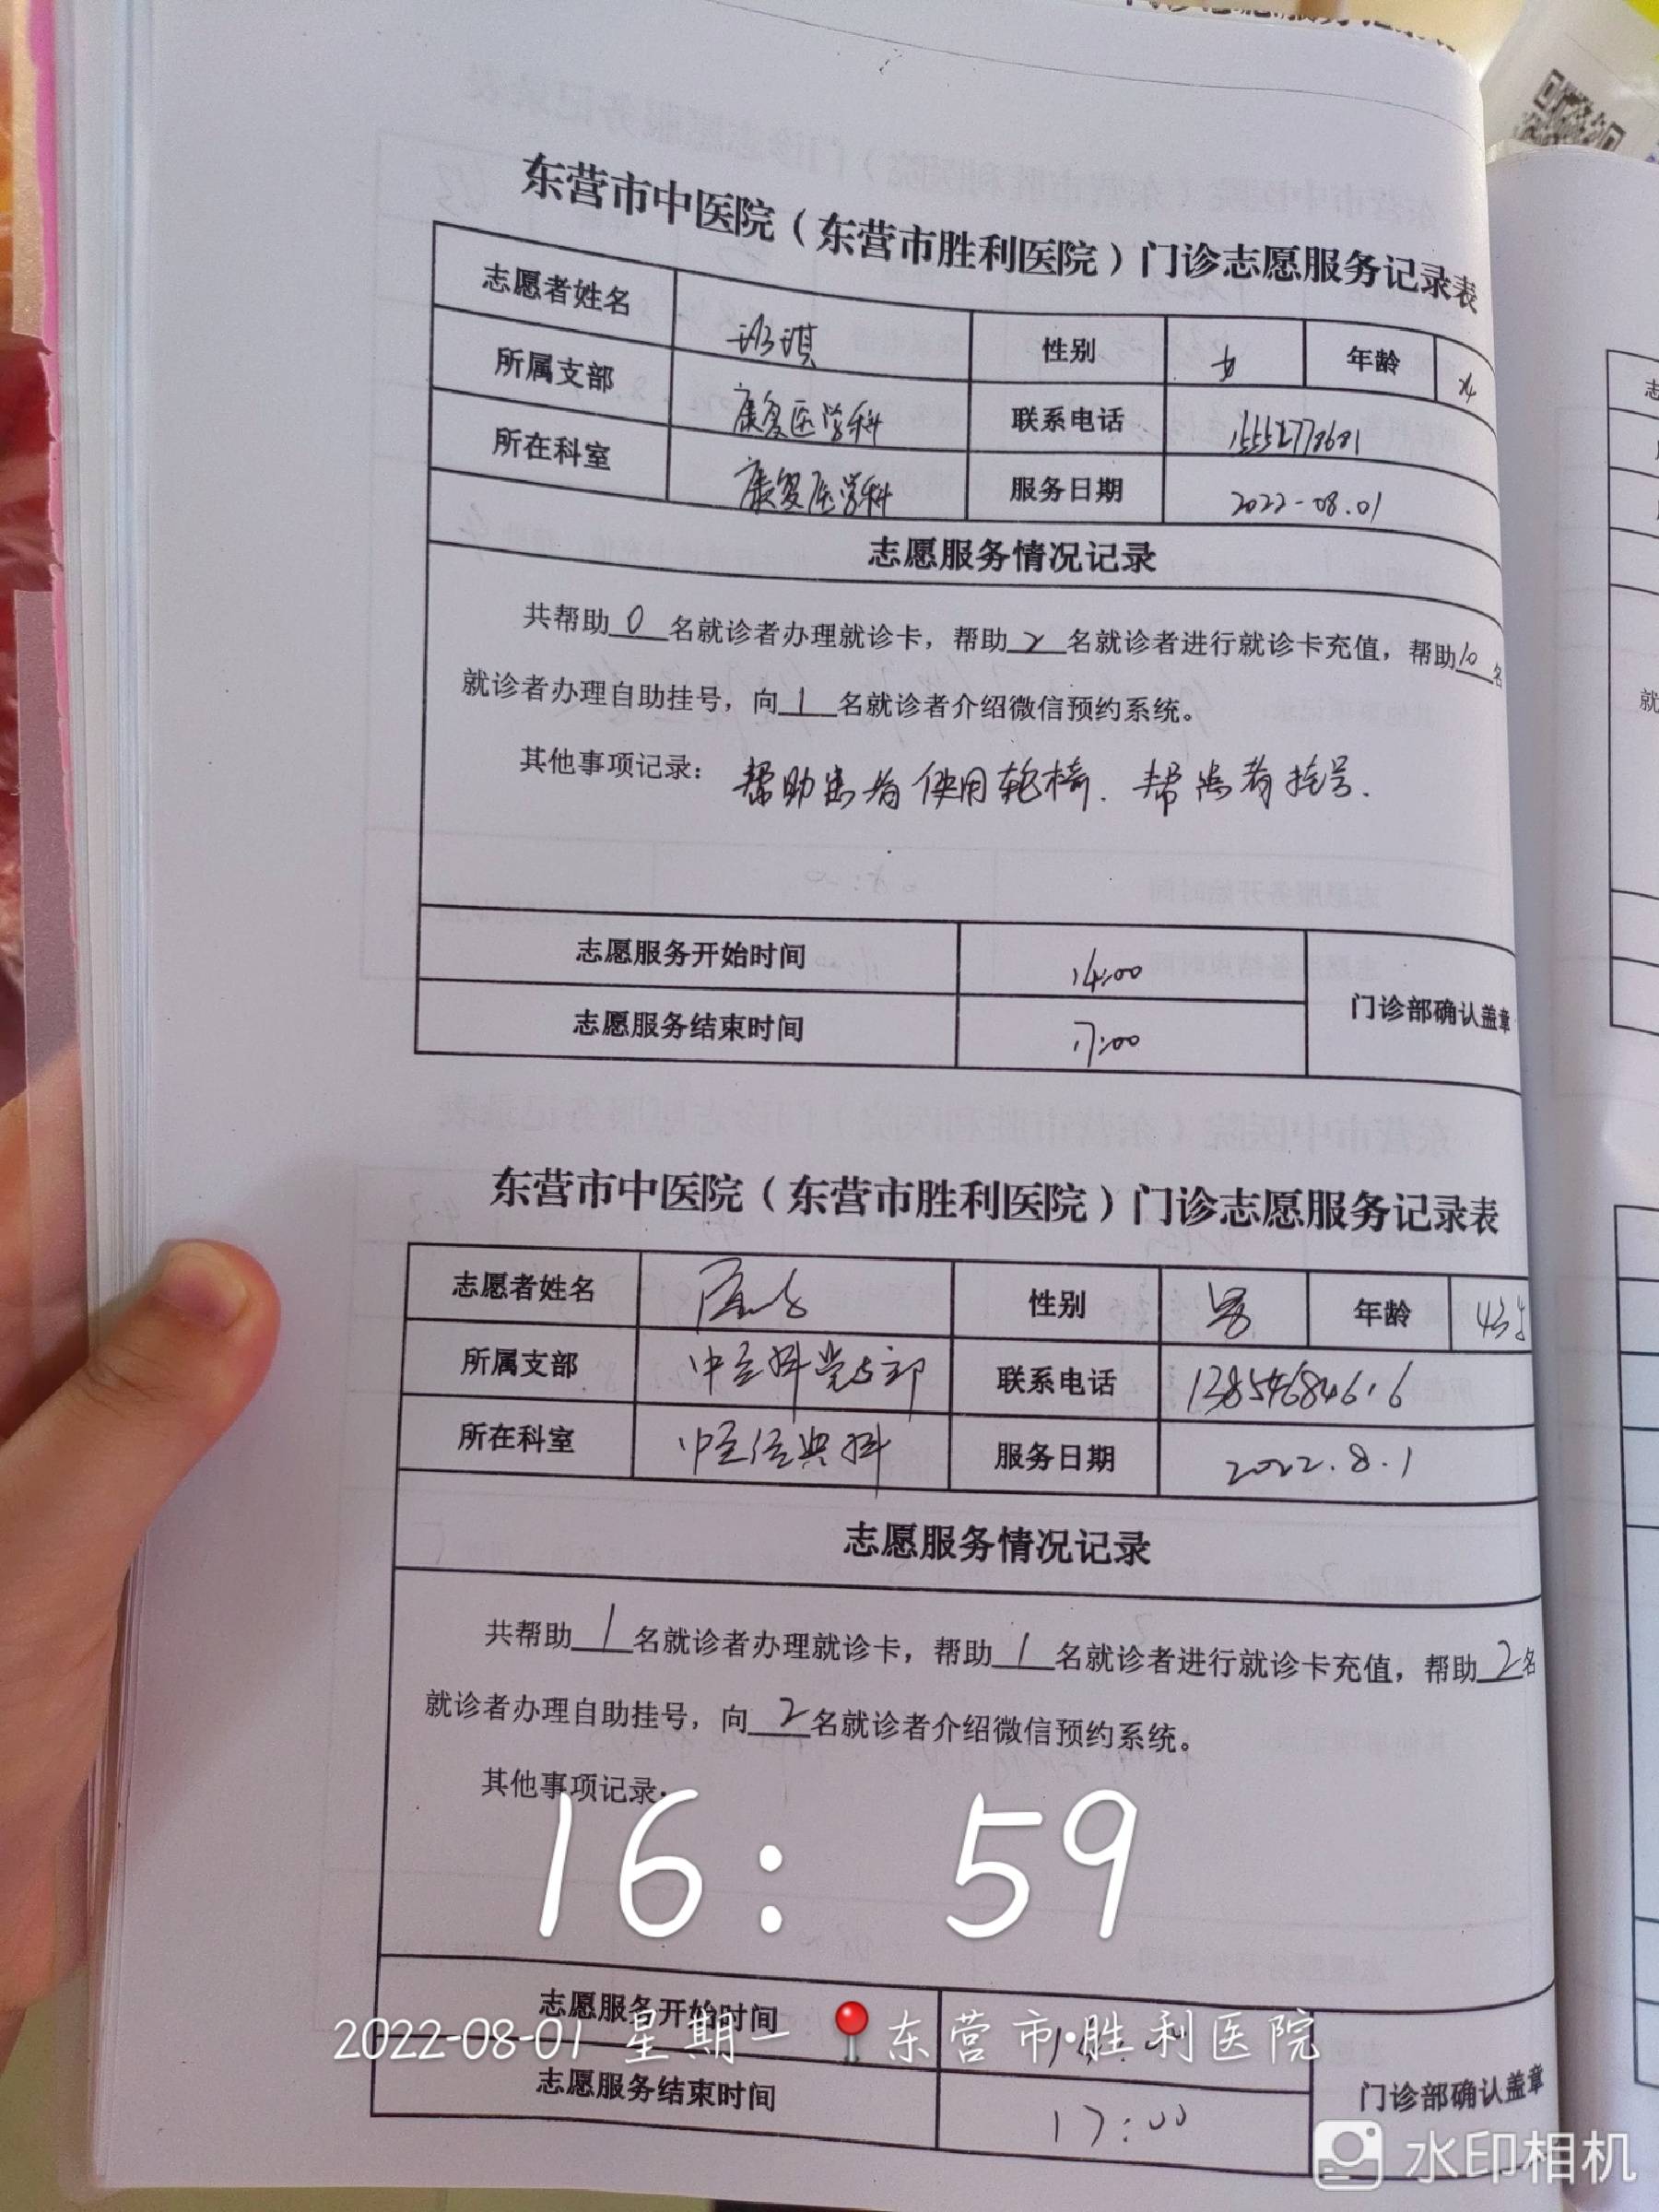 东营市中医院（东营市胜利医院）门诊志愿服务记录表
志愿者姓名 班琪 性别 女 年龄
所属支部 康复医学科 联系电话 15552778681
所在科室 康复医学科 服务日期 2022-08.01
志愿服务情况记录
共帮助0名就诊者办理就诊卡，帮助2名就诊者进行就诊卡充值，帮助10名
就诊者办理自助挂号，向1名就诊者介绍微信预约系统。
其他事项记录：帮助患者使用轮椅．帮患者挂号．
志愿服务开始时间 14:00
门诊部确认盖章
志愿服务结束时间 17:00
东营市中医院（东营市胜利医院）门诊志愿服务记录表
志愿者姓名 性别 男 年龄 43岁
所属支部 中医科党支部 联系电话 13854684616
所在科室 中医经典科 服务日期 2022.8.1
志愿服务情况记录
共帮助1名就诊者办理就诊卡，帮助1名就诊者进行就诊卡充值，帮助2名
就诊者办理自助挂号，向2名就诊者介绍微信预约系统。
其他事项记录：
16: 59
志愿服务开始时间
2022-08-01 星期一 东营市·胜利医院
志愿服务结束时间 17:00
门诊部确认盖章
水印相机